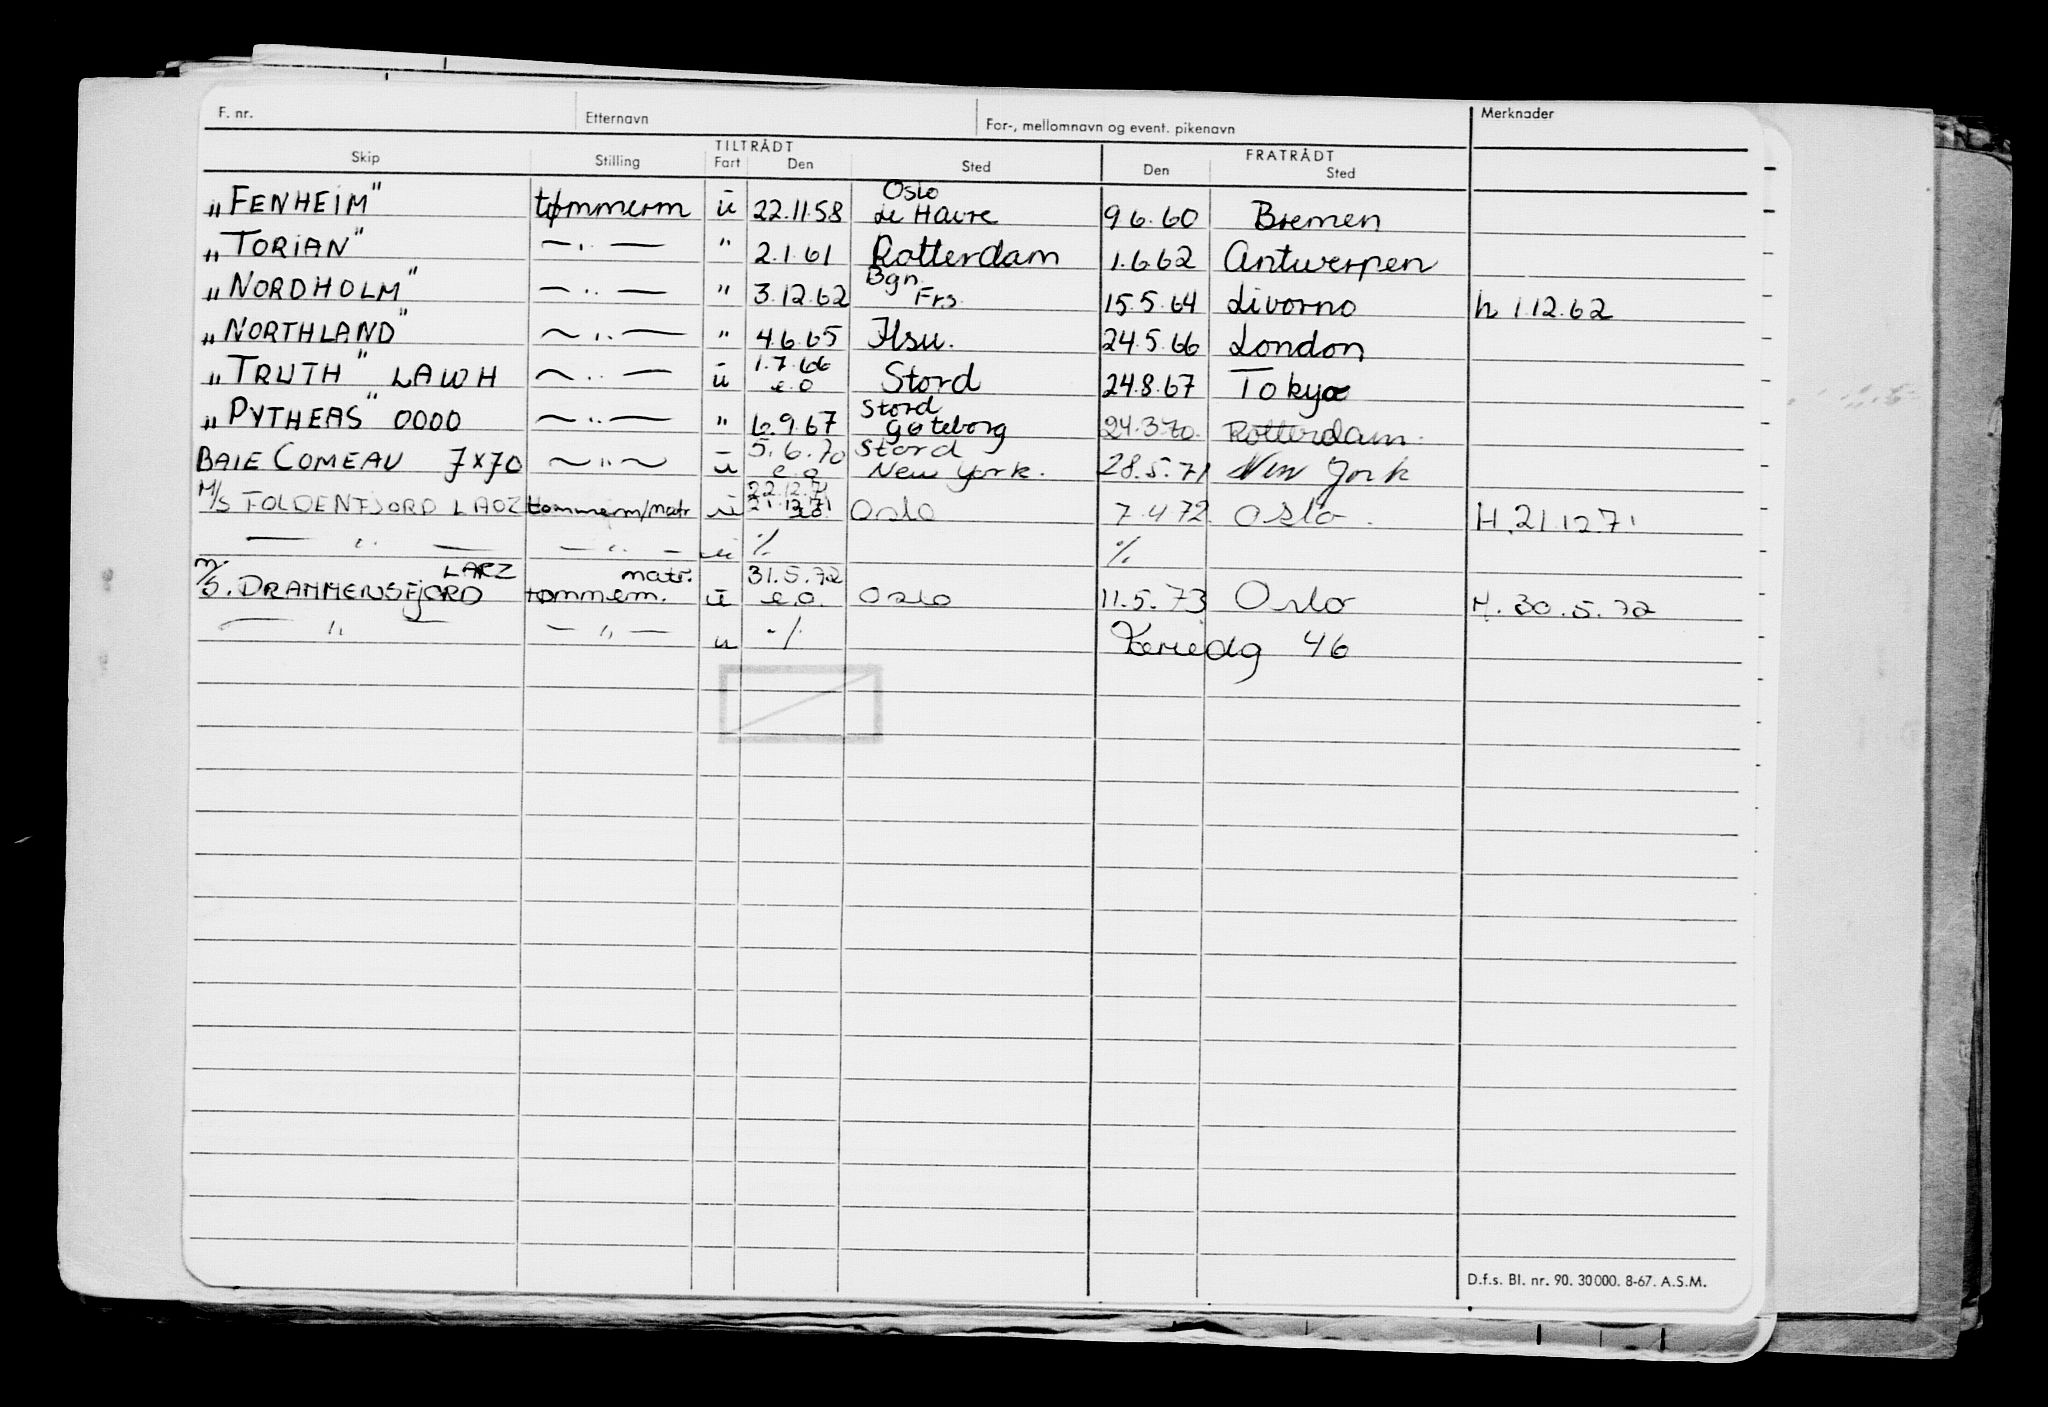 F. nr. Etternavn For-, mellomnavn og event. pikenavn Merknader
TILTRÅDT FRATRÅDT
Skip Stilling Fart Den Sted Den Sted
Oslo
„FENHEIM" tømmerm ū 22.11.58 Le Havre 9.6.60 Bremen
„TORIAN" —„— " 2.1.61 Rotterdam 1.6.62 Antwerpen
Bgn.
„NORDHOLM" —„— " 3.12.62 Frs. 15.5.64 Livorno h 1.12.62
„NORTHLAND" —„— " 4.6.65 Hsu. 24.5.66 London
1.7.66
„TRUTH" LAWH —„— ū e.o Stord 24.8.67 Tokyo
Stord
„PYTHEAS" OOOO —„— " 6.9.67 Gøteborg 24.3.70. Rotterdam.
5.6.70 Stord
BAIE COMEAU 7X70 —„— ū e.o New York. 28.5.71 New York
22.12.71
21.12.71
M/S TOLDENFJORD LAOZ tømmerm/matr ū eo. Oslo 7.4.72 Oslo. H.21.12.71
—„— —„— ū % %
LARZ matr. 31.5.72
M/S. DRAMMENSFJORD tømmerm. ū e.o. Oslo 11.5.73 Oslo H. 30.5.72
—„— —„— u -/. Feriedg 46
D.f.s. Bl. nr. 90. 30000. 8-67. A.S.M.